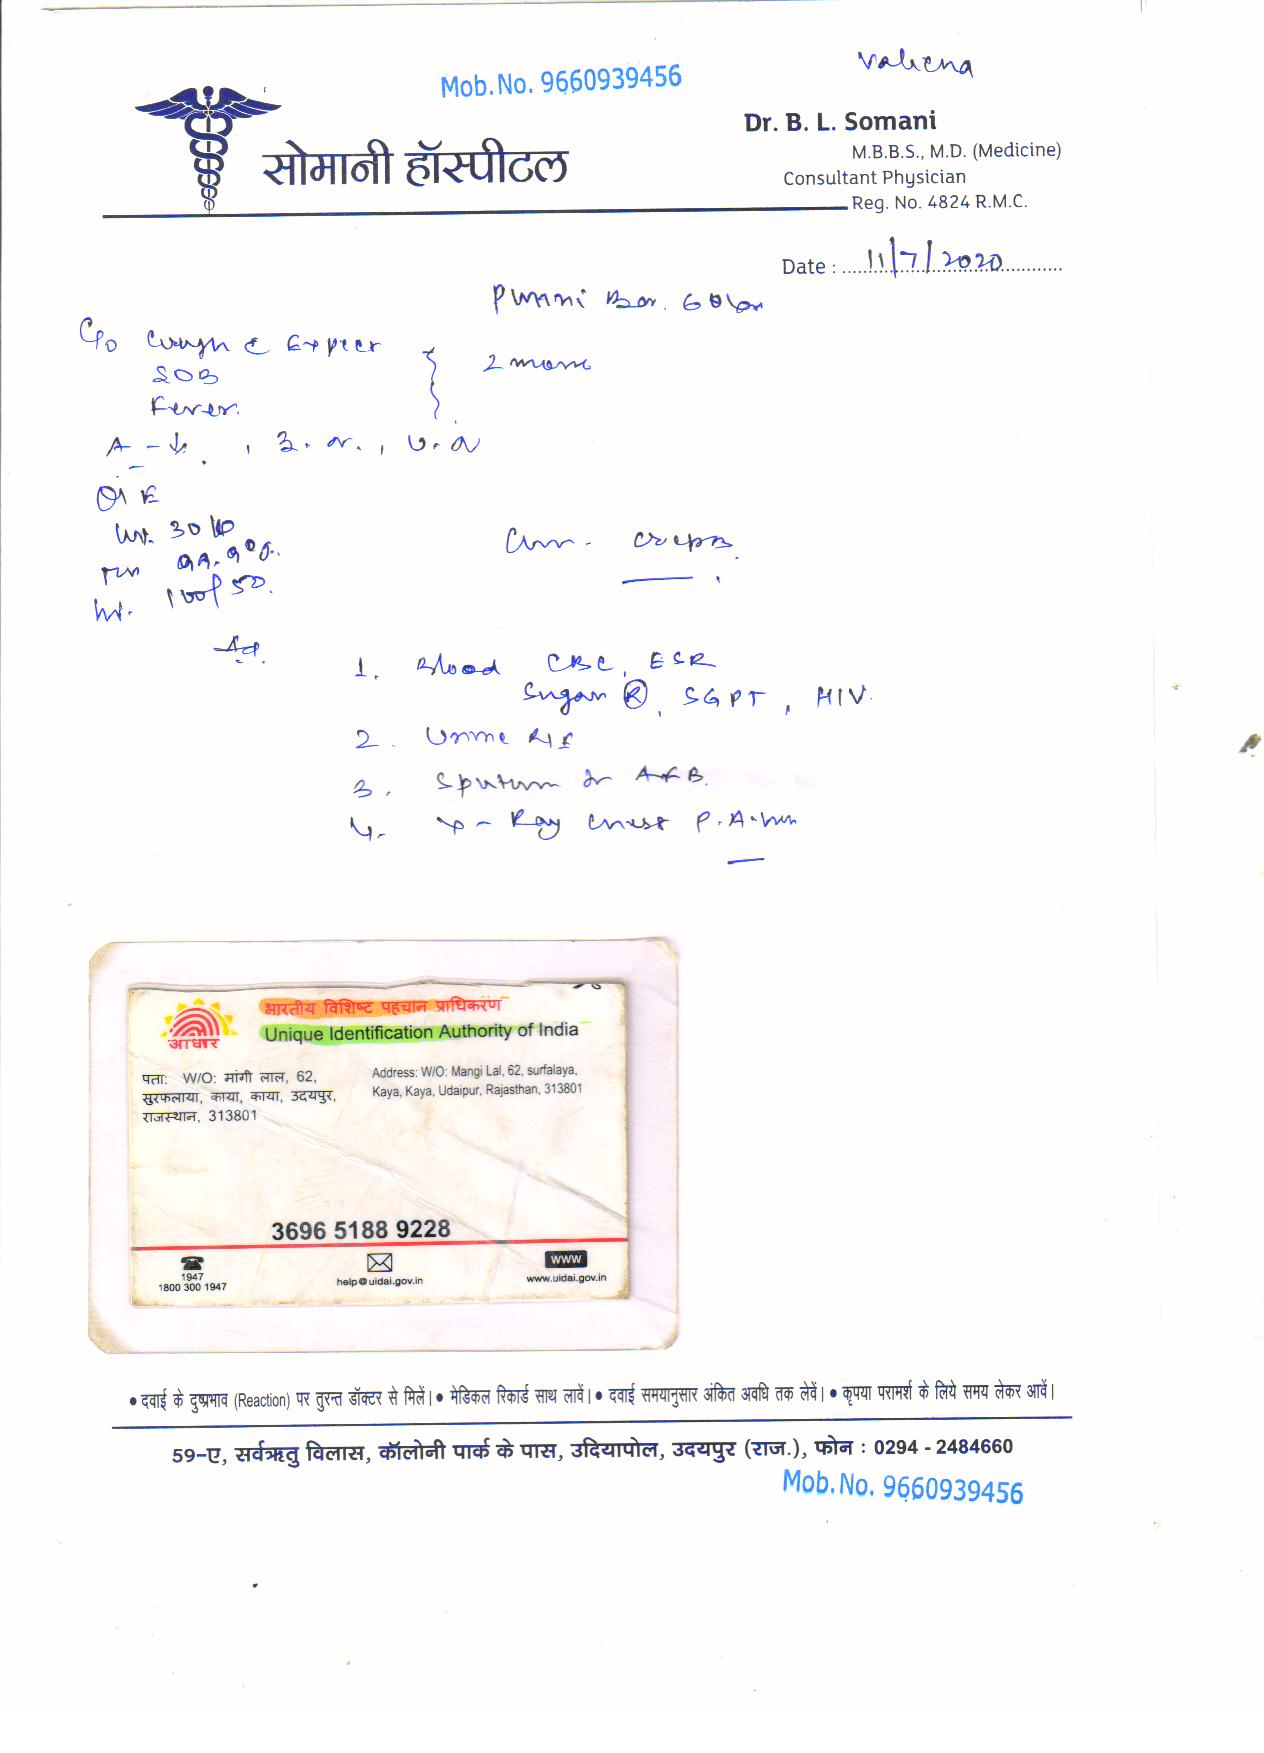 Mob.No. 9660939456
सोमानी हॉस्पीटल
Dr. B. L. Somani
M.B.B.S., M.D. (Medicine)
Consultant Physician
Reg. No. 4824 R.M.C.
Date : 11/7/2020
C/o Cough c Expect
SOB
Fever.
2
A - ↓
O/E
Wt. 30 kg
99.9°F.
100/50.
Chest - creps
Ad.
1. Blood CBC, ESR
Sugar R, SGPT, HIV.
2. Urine R/E
3. Sputum for AFB.
4. X-Ray Chest P.A. view
भारतीय विशिष्ट पहचान प्राधिकरण
Unique Identification Authority of India
आधार
पता: W/O: मांगी लाल, 62,
सुरफलाया, काया, काया, उदयपुर,
राजस्थान, 313801
Address: W/O: Mangi Lal, 62, surfalaya,
Kaya, Kaya, Udaipur, Rajasthan, 313801
3696 5188 9228
1947
1800 300 1947
help@uidai.gov.in
www
www.uidai.gov.in
• दवाई के दुष्प्रभाव (Reaction) पर तुरन्त डॉक्टर से मिलें। • मेडिकल रिकार्ड साथ लावें। • दवाई समयानुसार अंकित अवधि तक लेवें। • कृपया परामर्श के लिये समय लेकर आवें।
59-ए, सर्वऋतु विलास, कॉलोनी पार्क के पास, उदियापोल, उदयपुर (राज.), फोन : 0294 - 2484660
Mob.No. 9660939456